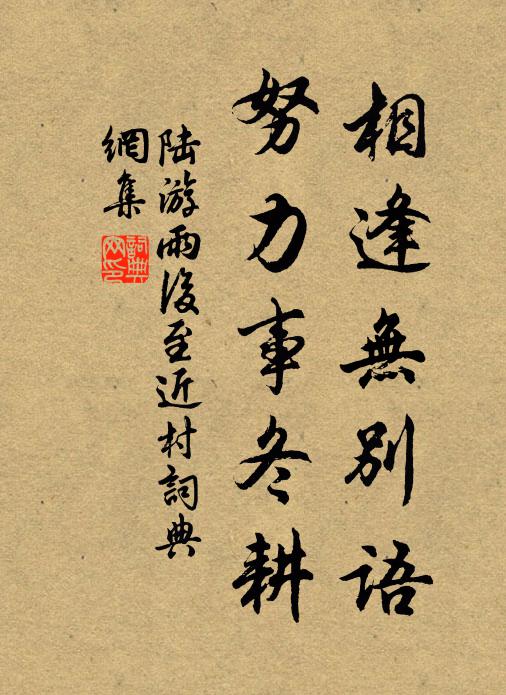 相逢無別語
努力事冬耕
陆游雨後至近村詞典
網集
詞典
网印